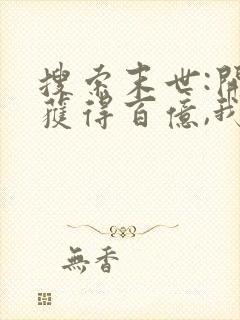 搜索末世:開
獲得百億,我
無香